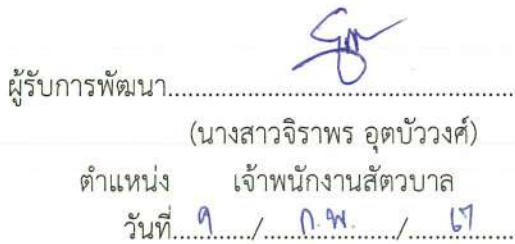 ผู้รับการพัฒนา................................................
(นางสาวจิราพร อุตบัววงศ์)
ตำแหน่ง เจ้าพนักงานสัตวบาล
วันที่.....๑...../.....ก.พ....../......๖๗......